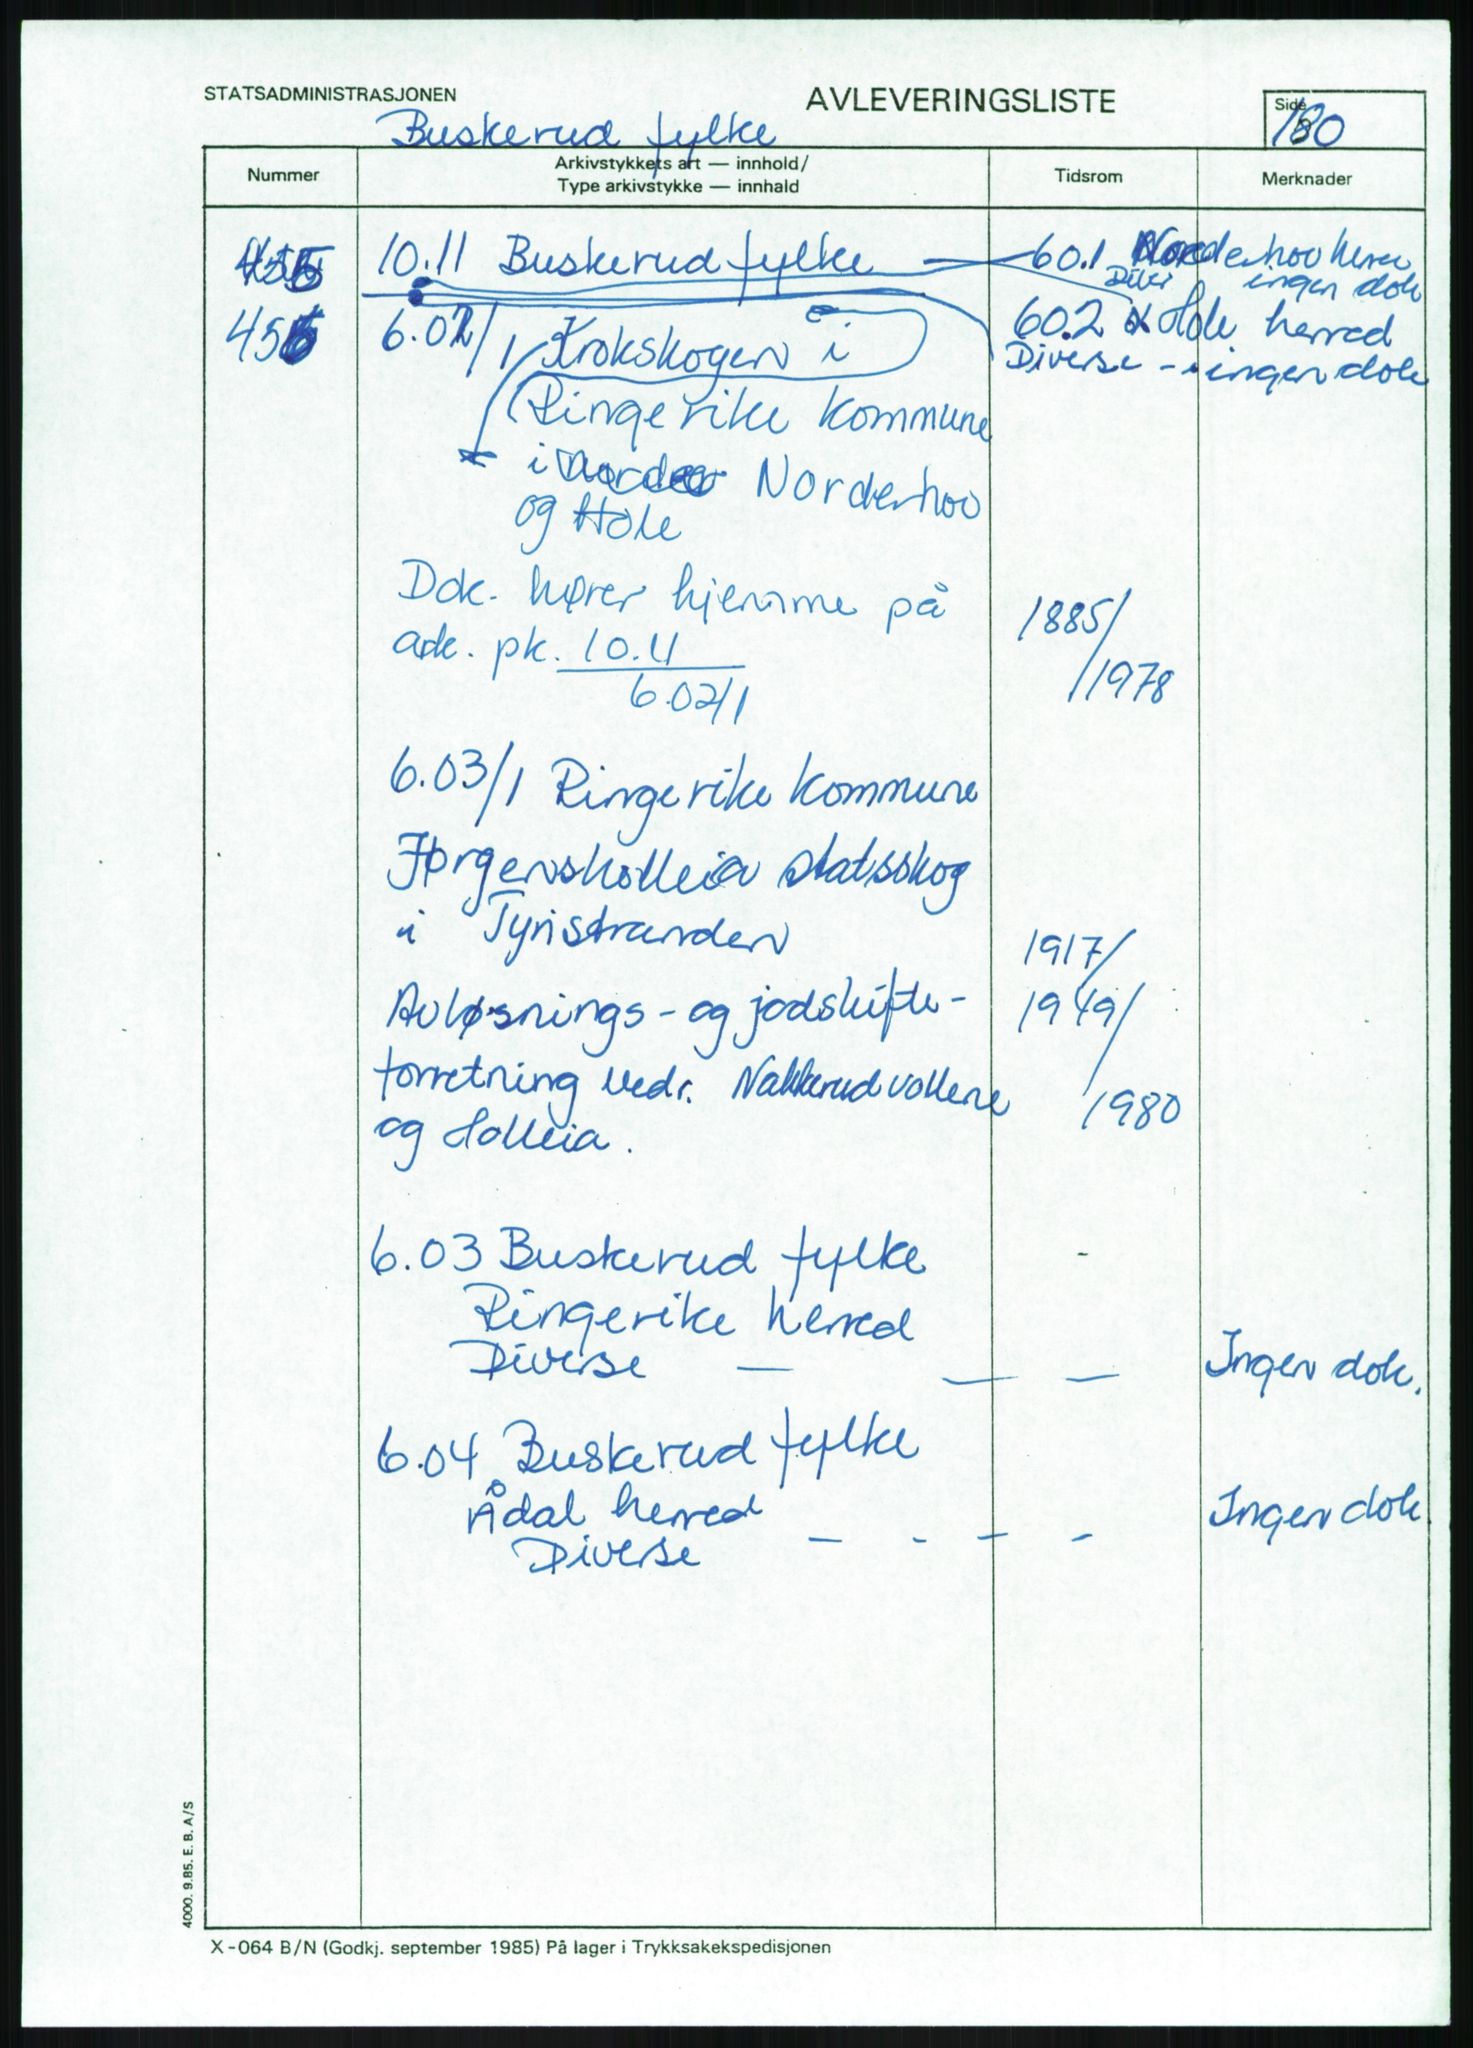 STATSADMINISTRASJONEN
AVLEVERINGSLISTE
Side
180
Buskerud fylke
Nummer
Arkivstykkets art — innhold/
Type arkivstykke — innhald
Tidsrom
Merknader
455 10.11 Buskerud fylke 60.1 Norderhov herre
Diver ingen dok
455 6.02/1 Krokskogen i 60.2 Hole herred
Diverse - ingen dok
Ringerike kommune
i Norderhov
og Hole
Dok. hører hjemme på 1885/
ark. pk. 10.11 /1978
6.02/1
6.03/1 Ringerike kommune
Jørgensholleia statsskog
i Tyristranden 1917/
Avløsnings- og jodskifte- 1949/
forretning vedr. Nakkerudvollene /1980
og Holleia.
6.03 Buskerud fylke -
Ringerike herred
Diverse — — — Ingen dok.
6.04 Buskerud fylke
Ådal herred Ingen dok
Diverse - - - -
4000. 9.85. E. B. A/S
X-064 B/N (Godkj. september 1985) På lager i Trykksakekspedisjonen